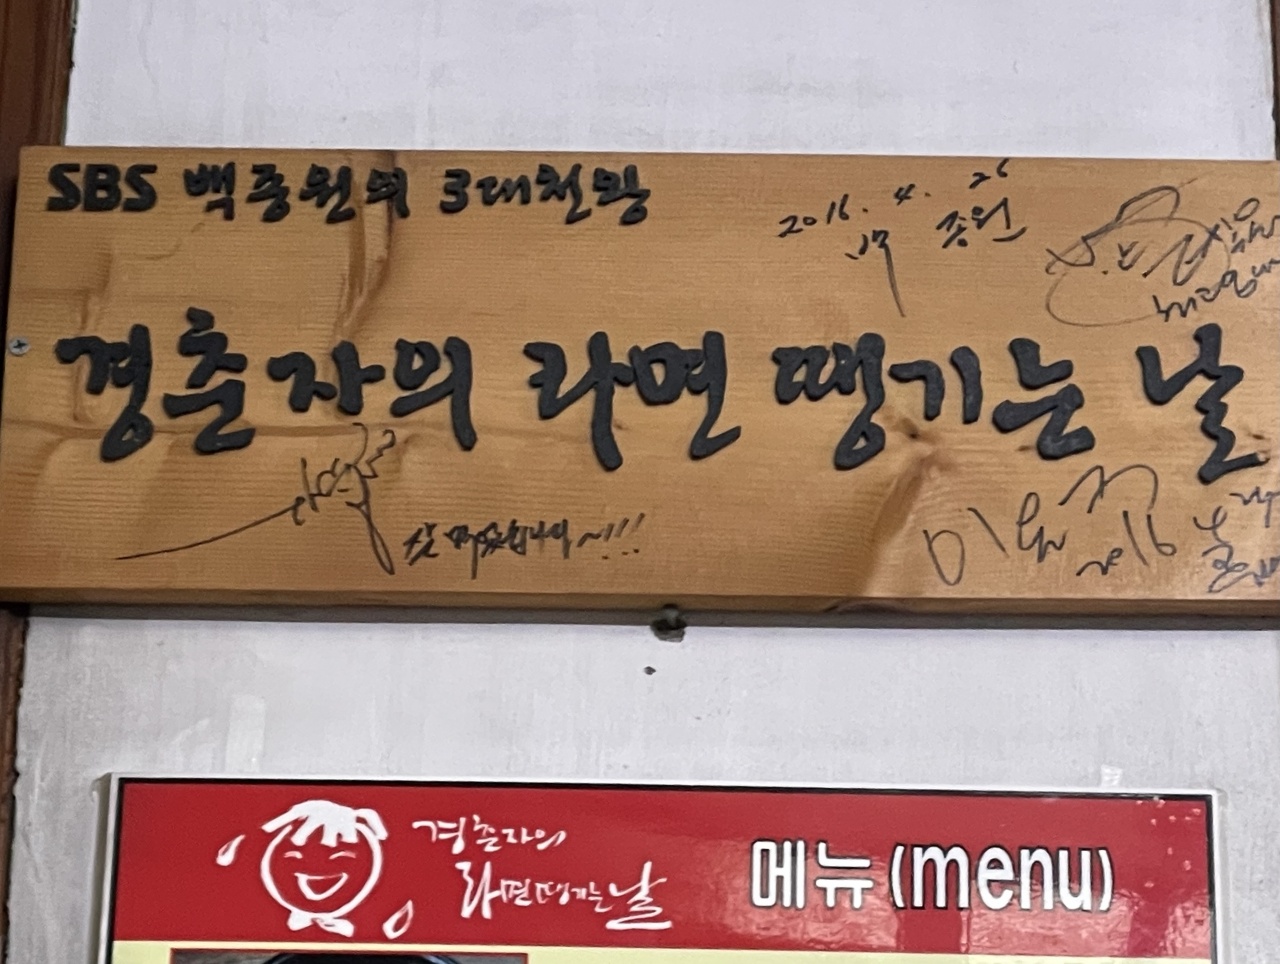 SBS 백종원의 3대천왕
2016. 4. 26
종원
경춘자의 라면 땡기는 날
잘 먹었습니다~!!!
2016
경춘자의
라면땡기는날
메뉴(menu)